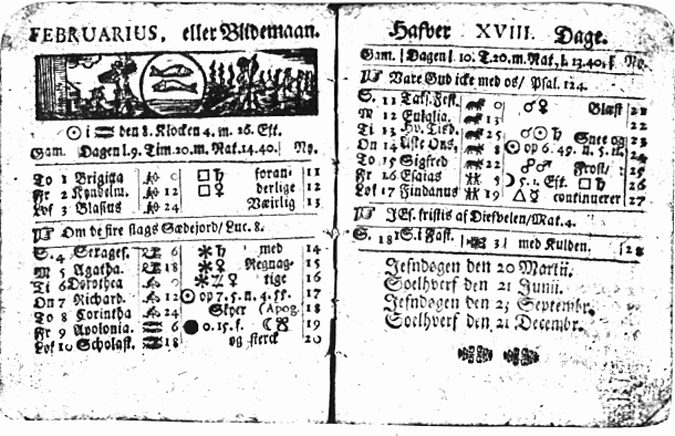 FEBRUARIUS, eller Blidemaan.
☉ i ♒ den 8. Klocken 4. m. 26. Eft.
Gam. Dagen l. 9. Tim. 20. m. Nat. 14. 40. Ny.
To 1 Brigitta 0 □ ♄ foran- 11
Fr 2 Kyndelm. 12 □ ♀ derlige 12
Løf 3 Blasius 24 Værlig 13
Om de fire slags Sædejord/ Luc. 8.
S. 4 Serages. 6 ✱ ♄ med 14
M 5 Agatha. 18 ✱ ♀ Regnag- 15
Ti 6 Dorothea 0 ✱ ♃ ♀ tige 16
On 7 Richard. 12 ☉ op 7. 5. n. 4. 55. 17
To 8 Corintha 24 Skyer (Apog. 18
Fr 9 Apolonia. 6 ● 0. 15. f. 19
Løf 10 Scholast. 18 og sterck 20
Hafver XVIII. Dage.
Gam. Dagen l. 10. T. 20. m. Nat. l. 13. 40. Ny.
Vare Gud icke med os/ Psal. 124.
S. 11 Fast. Fest. 0 ♂ ♀ Blæst 21
M 12 Eulalia. 13 22
Ti 13 Hv. Tisd. 25 ♂ ☉ ♄ Snee og 23
On 14 Aske Ons. 8 ☉ op 6. 49. n. 5. 11. 24
To 15 Sigfred 22 Frost/ 25
Fr 16 Esaias 5 ☽ 5. 1. Eft. □ ♄ 26
Løf 17 Findanus 19 △ ☿ continuerer 27
JEs. fristis af Diefvelen/ Mat. 4.
S. 18 1 S. i Fast. 3 med Kulden. 28
Jefndøgen den 20 Martii.
Soelhverf den 21 Junii.
Jefndøgen den 23 Septembr.
Soelhverf den 21 Decembr.